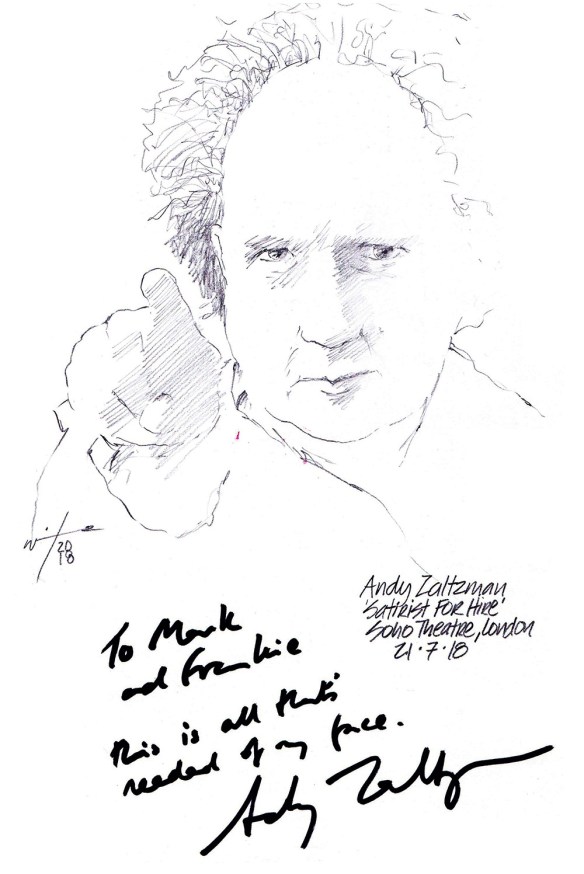 20
18
Andy Zaltzman
'Satirist For Hire'
Soho Theatre, London
21·7·18
To Mark
and Frankie
this is all that's
needed of my face.
Andy Zaltzman